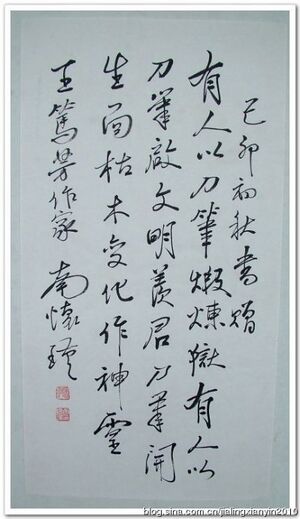 己卯初秋書贈
有人以刀筆煅煉獄有人以
刀筆啟文明羨君刀筆開
生面枯木變化作神靈
王篤芳作家 南懷瑾
blog.sina.com.cn/jialingxianyin2010